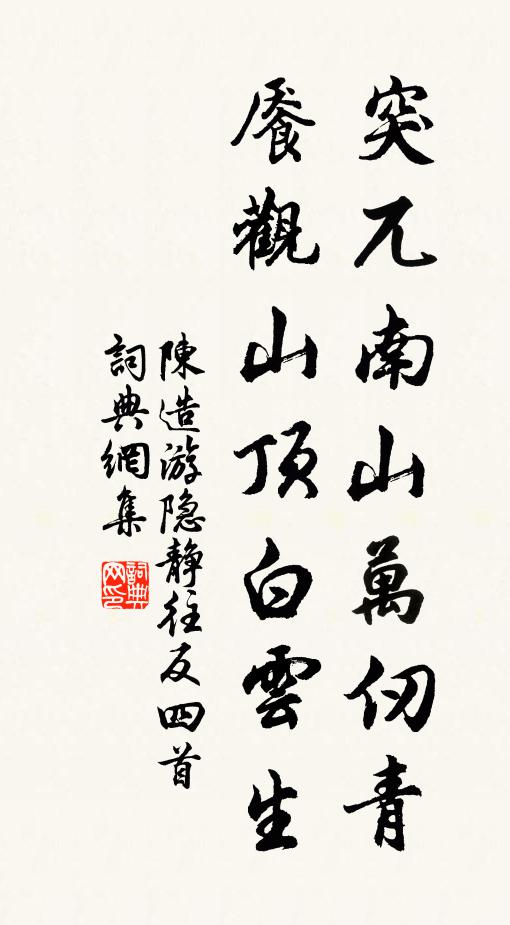 突兀南山萬仞青
饜觀山頂白雲生
陳造游隐静往反四首
詞典網集
詞典
网印